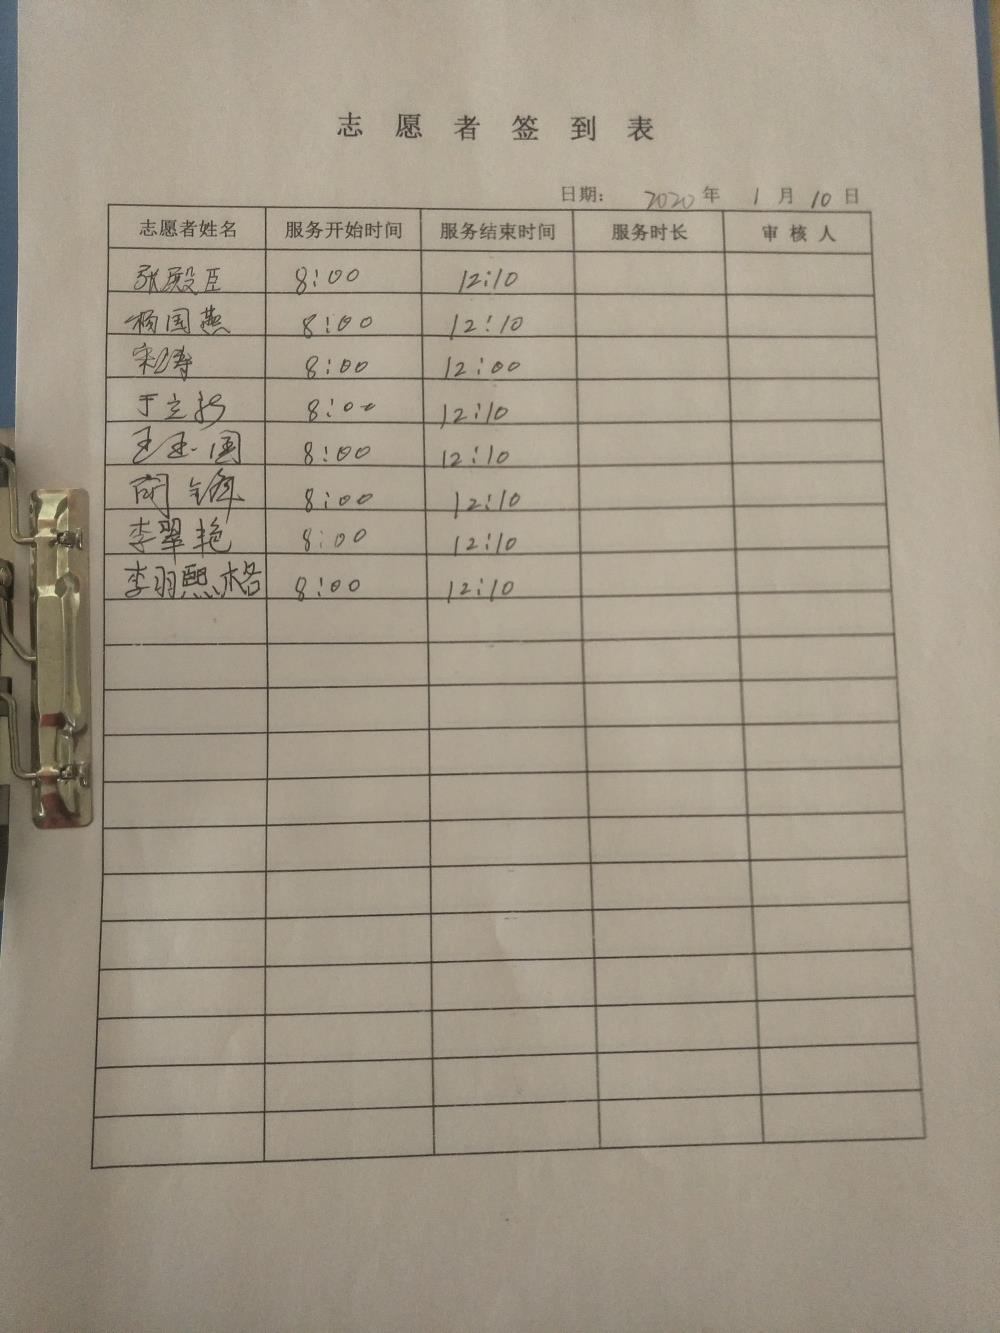 志愿者签到表
日期： 2020年 1月10日
志愿者姓名 服务开始时间 服务结束时间 服务时长 审核人
张殿臣 8:00 12:10
杨国燕 8:00 12:10
宋涛 8:00 12:00
于立新 8:00 12:10
王玉国 8:00 12:10
闭锋 8:00 12:10
李翠艳 8:00 12:10
李羽熙格 8:00 12:10